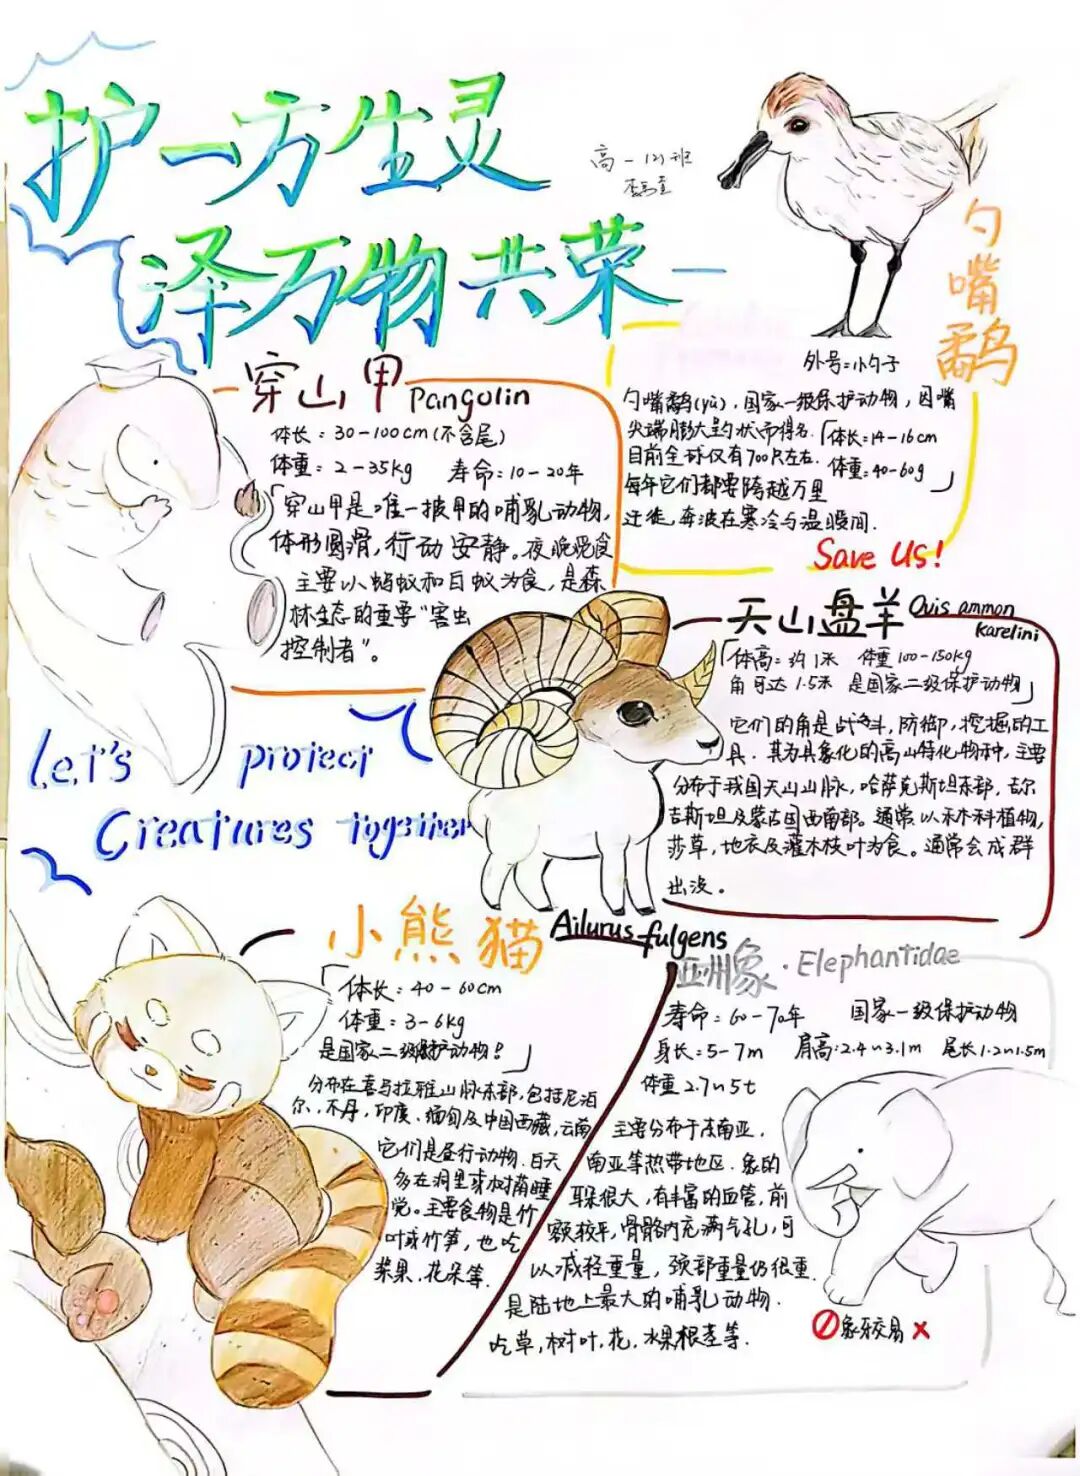 护一方生灵
泽万物共荣
高一(2)班
勺嘴鹬
外号=小勺子
勺嘴鹬(yù),国家一级保护动物,因嘴
尖端膨大呈勺状而得名.
目前全球仅有700只左右.
体长:14-16cm
体重:40-60g
每年它们都要跨越万里
迁徙,奔波在寒冷与温暖间.
Save Us!
穿山甲 Pangolin
体长:30-100cm(不含尾)
体重:2-35kg 寿命:10-20年
穿山甲是唯一披甲的哺乳动物,
体形圆滑,行动安静。夜晚觅食
主要以蚂蚁和白蚁为食,是森
林生态的重要“害虫
控制者”。
Let's protect
Creatures together
天山盘羊 Ovis ammon
karelini
体高:约1米 体重100-150kg
角可达1.5米 是国家二级保护动物
它们的角是战斗,防御,挖掘的工
具.其为具象化的高山特化物种,主要
分布于我国天山山脉,哈萨克斯坦东部,吉尔
吉斯坦及蒙古国西南部。通常以禾本科植物,
莎草,地衣及灌木枝叶为食。通常会成群
出没。
小熊猫 Ailurus fulgens
体长:40-60cm
体重:3-6kg
是国家二级保护动物!
分布在喜马拉雅山脉东部,包括尼泊
尔,不丹,印度、缅甸及中国西藏,云南
它们是昼行动物.白天
多在洞里或树荫睡
觉。主要食物是竹
叶或竹笋,也吃
浆果,花朵等.
亚洲象·Elephantidae
寿命:60-70年 国家一级保护动物
身长:5-7m 肩高:2.4~3.1m 尾长1.2~1.5m
体重2.7~5t
主要分布于东南亚.
南亚等热带地区.象的
耳朵很大,有丰富的血管,前
额较平,骨骼内充满气孔,可
以减轻重量,颈部重量仍很重.
是陆地上最大的哺乳动物.
吃草,树叶,花,水果根茎等.
象牙交易